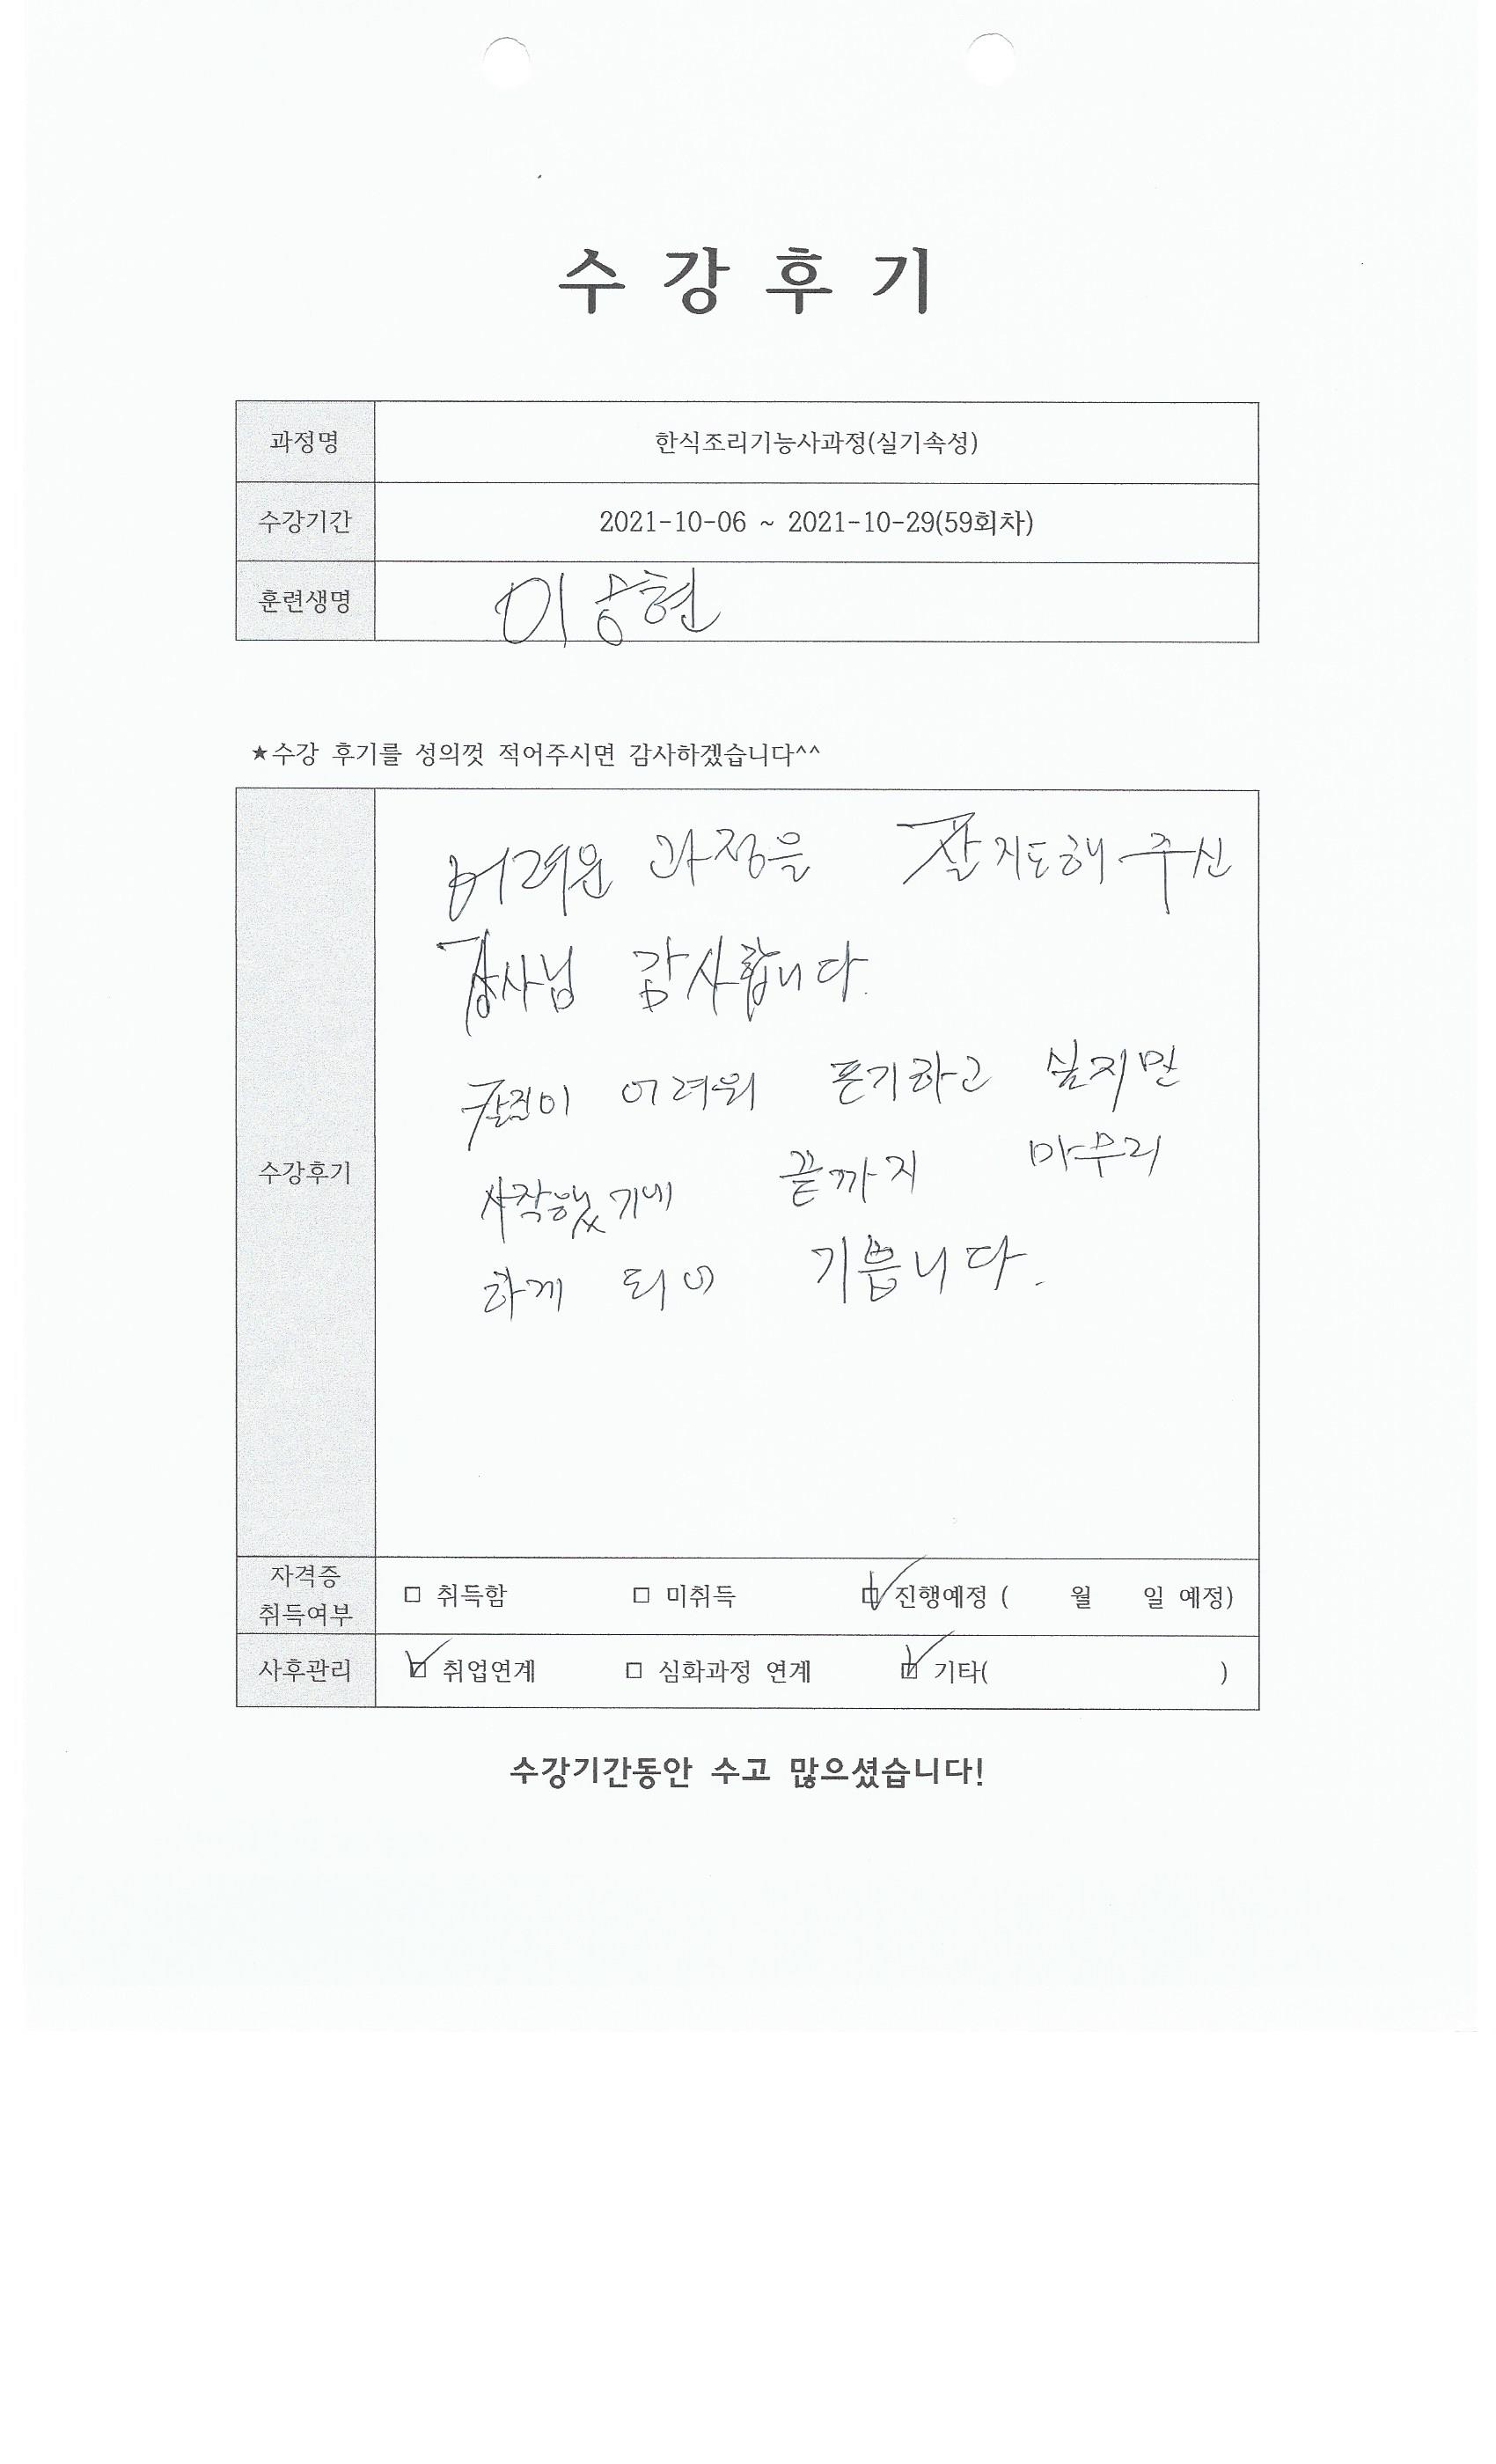 수 강 후 기
과정명 한식조리기능사과정(실기속성)
수강기간 2021-10-06 ~ 2021-10-29(59회차)
훈련생명 이승현
★수강 후기를 성의껏 적어주시면 감사하겠습니다^^
수강후기
어려운 과정을 잘 지도해 주신
강사님 감사합니다.
칼질이 어려워 포기하고 싶지만
시작했기에 끝까지 마무리
하게 되어 기쁩니다.
자격증 취득여부 □ 취득함 □ 미취득 ☑ 진행예정 ( 월 일 예정)
사후관리 ☑ 취업연계 □ 심화과정 연계 ☑ 기타( )
수강기간동안 수고 많으셨습니다!